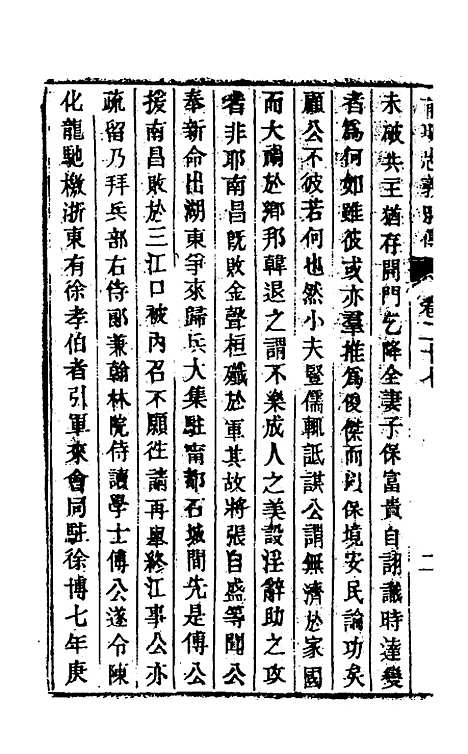 前明忠義別傳 卷二十七 二
未破共主猶存開門乞降全妻子保富貴自詡識時達變
者爲何如雖彼或亦羣推爲俊傑而以保境安民論功矣
顧公不彼若何也然小夫豎儒輒詆謀公謂無濟於家國
而大禍於鄉邦韓退之謂不樂成人之美設淫辭助之攻
者非耶南昌旣敗金聲桓殱於軍其故將張自盛等聞公
奉新命出湖東爭來歸兵大集駐甯都石城間先是傅公
援南昌敗於三江口被內召不願往請再畢終江事公亦
疏留乃拜兵部右侍郞兼翰林院侍讀學士傅公遂令陳
化龍馳檄浙東有徐孝伯者引軍來會同駐徐博七年庚